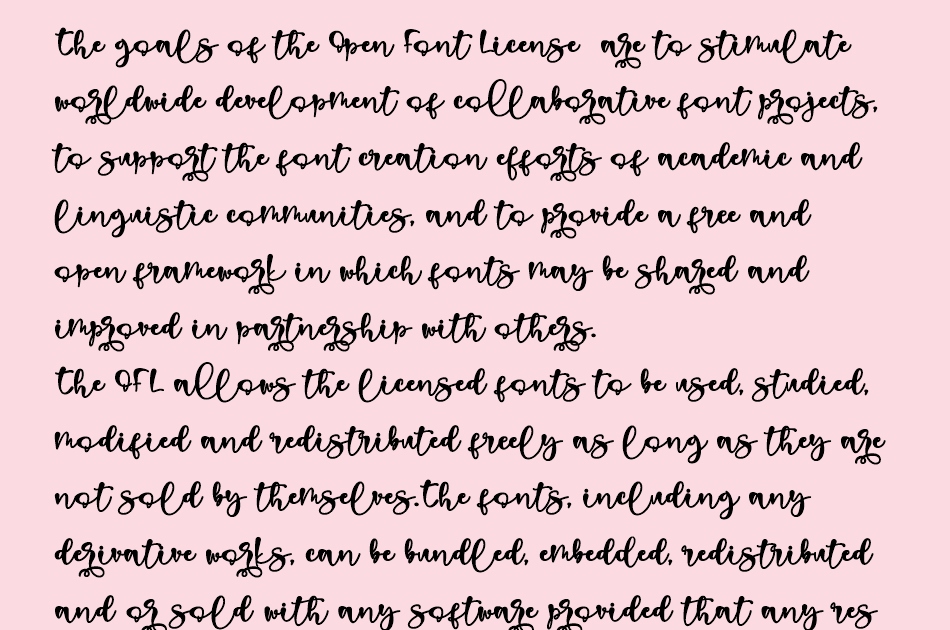 The goals of the Open Font License are to stimulate
worldwide development of collaborative font projects,
to support the font creation efforts of academic and
linguistic communities, and to provide a free and
open framework in which fonts may be shared and
improved in partnership with others.
The OFL allows the licensed fonts to be used, studied,
modified and redistributed freely as long as they are
not sold by themselves.The fonts, including any
derivative works, can be bundled, embedded, redistributed
and or sold with any software provided that any res